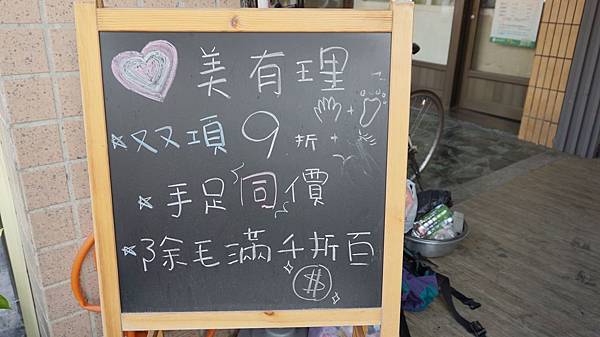 美有理
双項9折
手足同價
除毛滿千折百
$